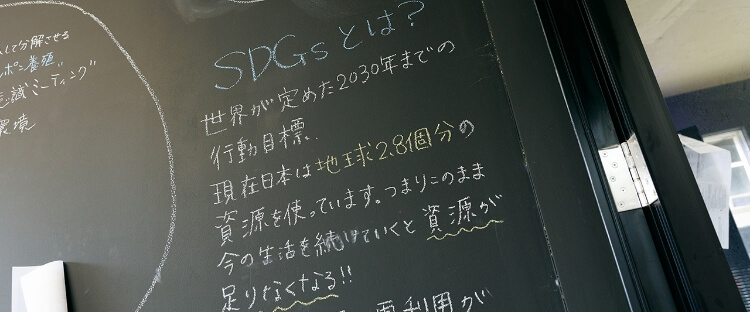 して分解させる
ポン養殖"
意識"ミーティング"
環境
SDGsとは?
世界が定めた2030年までの
行動目標、
現在日本は地球2.8個分の
資源を使っています。つまりこのまま
今の生活を続けていくと資源が
足りなくなる!!
再利用が